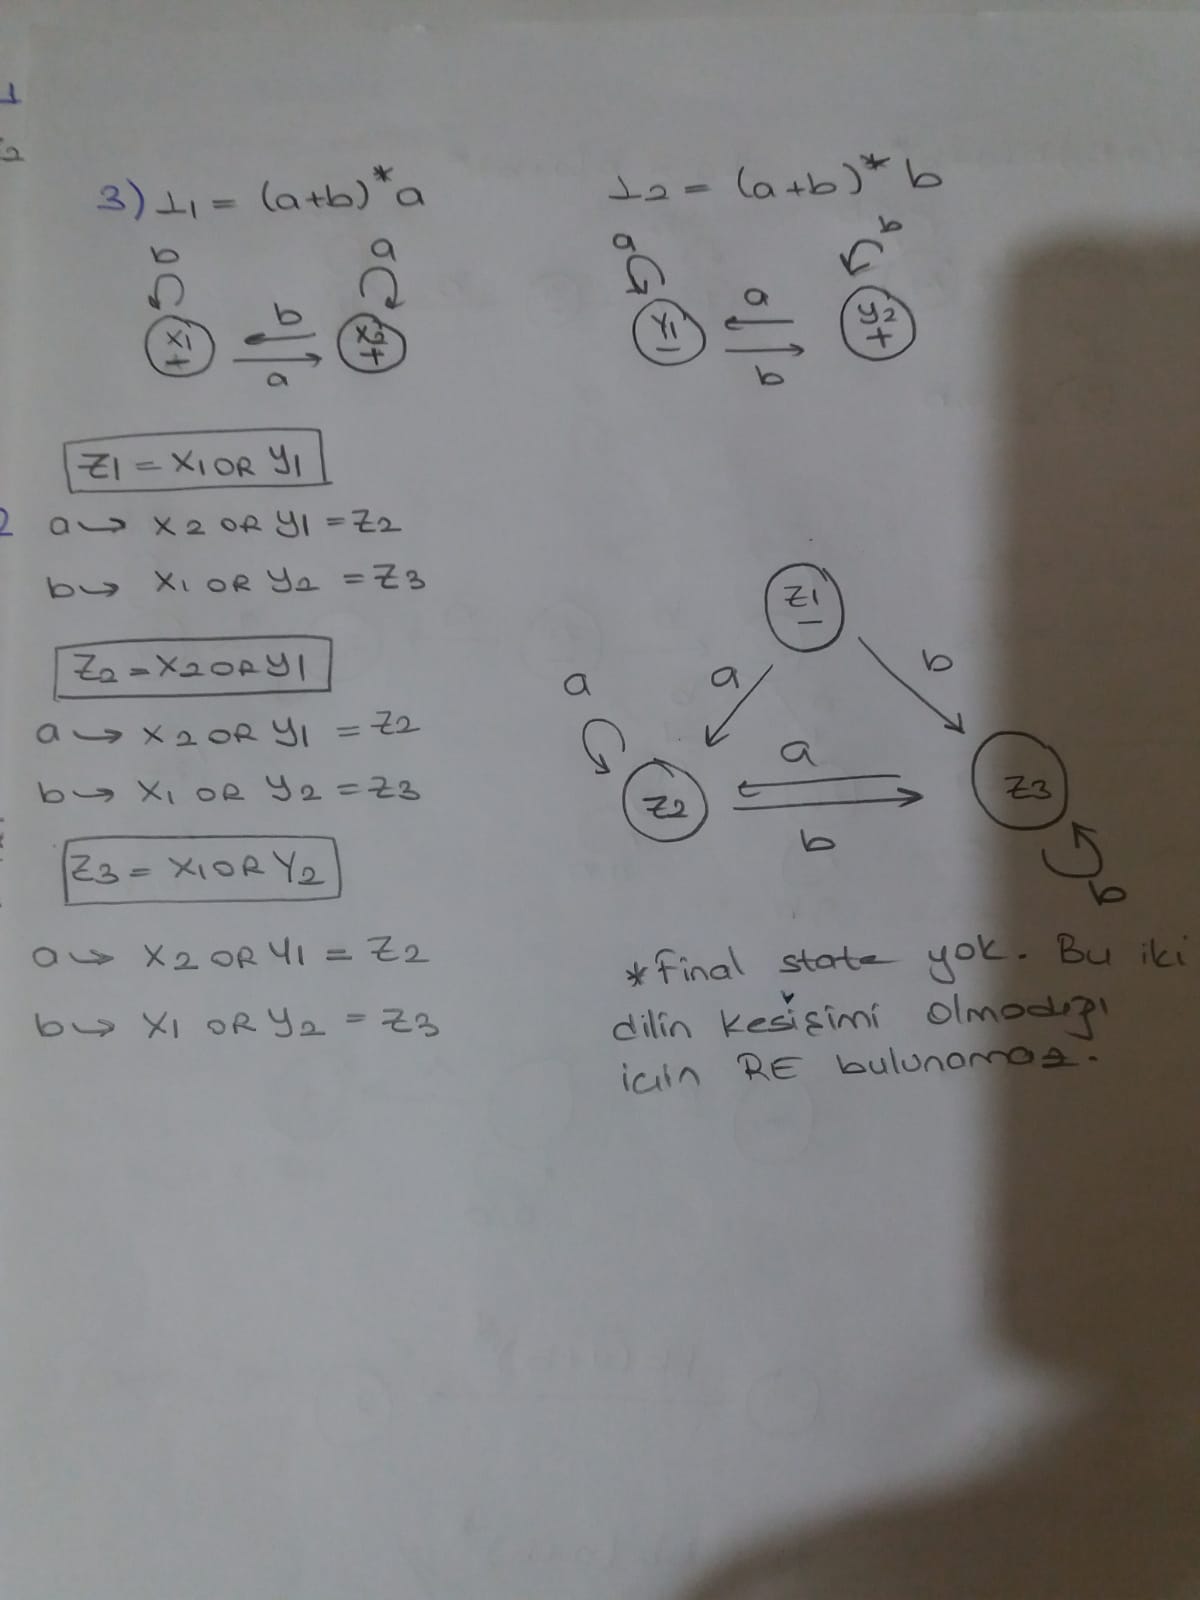 1
2
3) L1 = (a+b)* a
L2 = (a+b)* b
b
a
x1
+
b
a
x2
+
a
b
y1
-
a
b
y2
+
z1 = x1 OR y1
2
a → x2 OR y1 = z2
b → x1 OR y2 = z3
z2 = x2 OR y1
a → x2 OR y1 = z2
b → x1 OR y2 = z3
z3 = x1 OR y2
a → x2 OR y1 = z2
b → x1 OR y2 = z3
z1
-
a
b
a
a
z2
b
z3
b
* Final state yok. Bu iki
dilin kesişimi olmadığı
için RE bulunamaz.